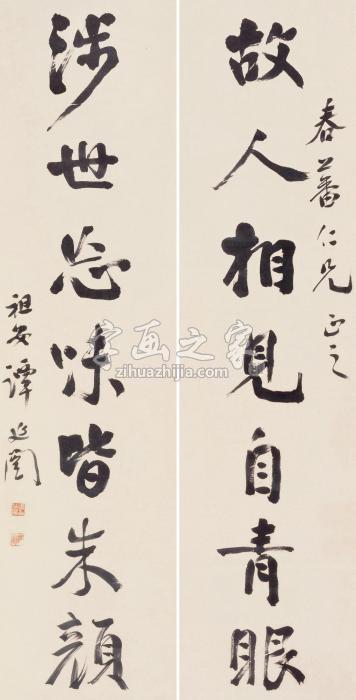 春蕃仁兄正之
故人相見自青眼
涉世忘味皆朱顔
祖安譚延闓
字画之家
zihuazhijia.com